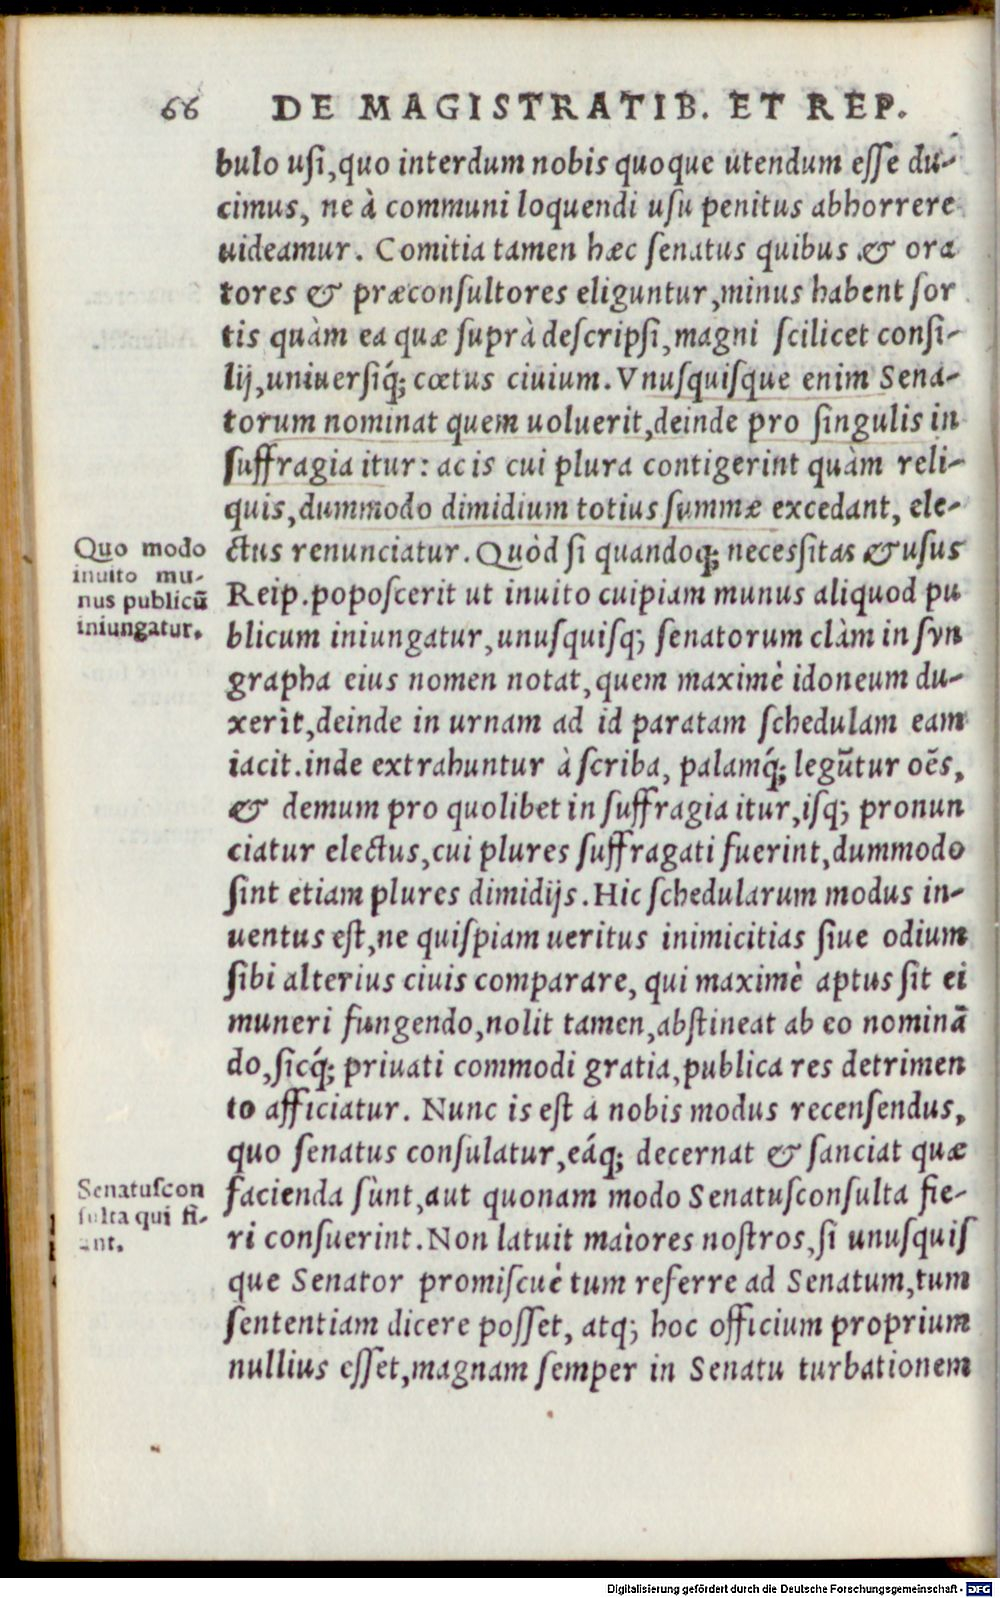 66 DE MAGISTRATIB. ET REP.
bulo uſi, quo interdum nobis quoque utendum eſſe du-
cimus, ne à communi loquendi uſu penitus abhorrere
uideamur. Comitia tamen hæc ſenatus quibus & ora
tores & præconſultores eliguntur, minus habent ſor
tis quàm ea quæ ſuprà deſcripſi, magni ſcilicet conſi-
lij, uniuerſiq́; cœtus ciuium. Vnuſquiſque enim Sena-
torum nominat quem uoluerit, deinde pro ſingulis in
ſuffragia itur: ac is cui plura contigerint quàm reli-
quis, dummodo dimidium totius ſummæ excedant, ele-
ctus renunciatur. Quòd ſi quandoq; neceſsitas & uſus
Reip. popoſcerit ut inuito cuipiam munus aliquod pu
blicum iniungatur, unuſquiſq; ſenatorum clàm in ſyn
grapha eius nomen notat, quem maximè idoneum du-
xerit, deinde in urnam ad id paratam ſchedulam eam
iacit. inde extrahuntur à ſcriba, palamq́; legūtur oēs,
& demum pro quolibet in ſuffragia itur, iſq; pronun
ciatur electus, cui plures ſuffragati fuerint, dummodo
ſint etiam plures dimidijs. Hic ſchedularum modus in-
uentus eſt, ne quiſpiam ueritus inimicitias ſiue odium
ſibi alterius ciuis comparare, qui maximè aptus ſit ei
muneri fungendo, nolit tamen, abſtineat ab eo nominā
do, ſicq́; priuati commodi gratia, publica res detrimen
to afficiatur. Nunc is eſt a nobis modus recenſendus,
quo ſenatus conſulatur, eáq; decernat & ſanciat quæ
facienda ſunt, aut quonam modo Senatuſconſulta fie-
ri conſuerint. Non latuit maiores noſtros, ſi unuſquiſ
que Senator promiſcuè tum referre ad Senatum, tum
ſententiam dicere poſſet, atq; hoc officium proprium
nullius eſſet, magnam ſemper in Senatu turbationem
Quo modo
inuito mu-
nus publicū
iniungatur.
Senatuſcon
ſulta qui fi-
ant.
Digitalisierung gefördert durch die Deutsche Forschungsgemeinschaft - DFG